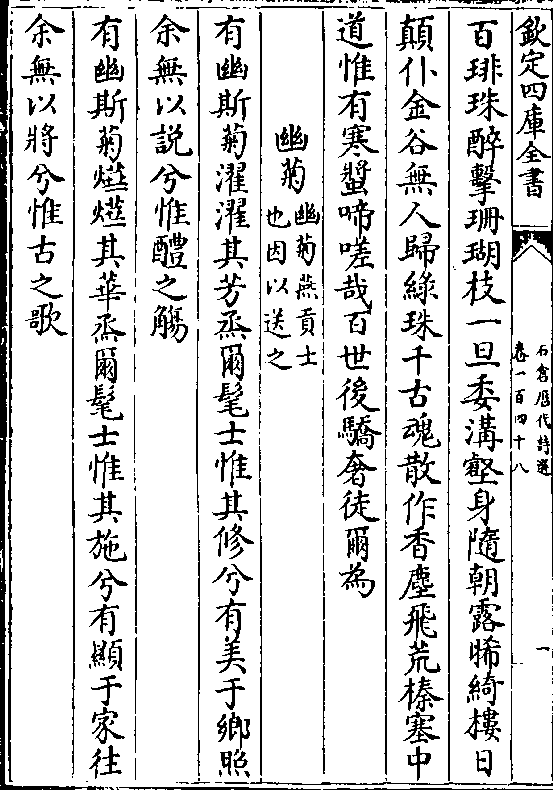 欽定四庫全書
石倉歷代詩選
卷一百四十八
一
百琲珠醉擊珊瑚枝一旦委溝壑身隨朝露晞綺樓日
顛仆金谷無人歸綠珠千古魂散作香塵飛荒榛塞中
道惟有寒螿啼嗟哉百世後驕奢徒爾為
幽菊
幽菊燕貢士
也因以送之
有幽斯菊濯濯其芳烝爾髦士惟其修兮有美于鄉照
余無以説兮惟醴之觴
有幽斯菊爓爓其華烝爾髦士惟其施兮有顯于家往
余無以將兮惟古之歌